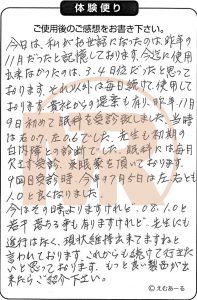 体験便り
ご使用後のご感想をお書き下さい。
今日は、私がお世話になったのは、昨年の
11月だったと記憶しております。今迄に使用
出来なかったのは、3、4日位だったと思って
おります。それ以外は毎日続けて使用して
おります。貴社からの提案も有り、昨年11月
9日初めて眼科を受診致しました。当時
は右0.7、左0.6でした。先生も初期の
白内障との診断でした。眼科には毎月
欠かさず受診、点眼薬を頂いております。
9回目受診時、今年の7月5日は左右とも
1.0と良くなりました。
今はその時よりますけれど、0.8、1.0と
若干落ちる事もありますけれど、先生にも
進行はなく、現状維持出来てますねと
言われております。これからも続けて行きた
いと思っております。もっと良い製品が出
来たらご紹介下さい。
©えむあーる